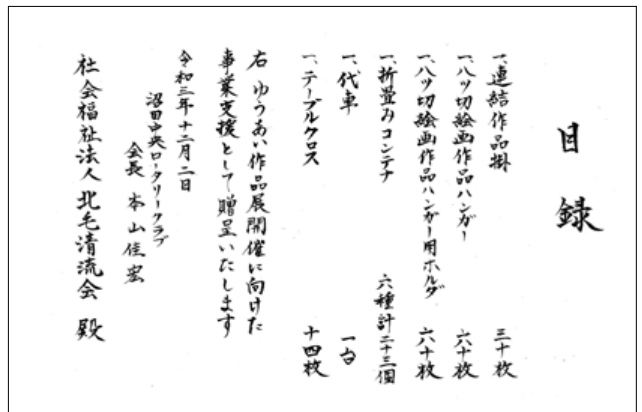 目録
一、連結作品掛 三十枚
一、八ツ切絵画作品ハンガー 六十枚
一、八ツ切絵画作品ハンガー用ホルダ 六十枚
一、折畳みコンテナ 六種計二十三個
一、代車 一台
一、テーブルクロス 十四枚
右 ゆうあい作品展開催に向けた
事業支援として贈呈いたします
令和三年十二月二日
沼田中央ロータリークラブ
会長 本山佳宏
社会福祉法人北毛清流会 殿